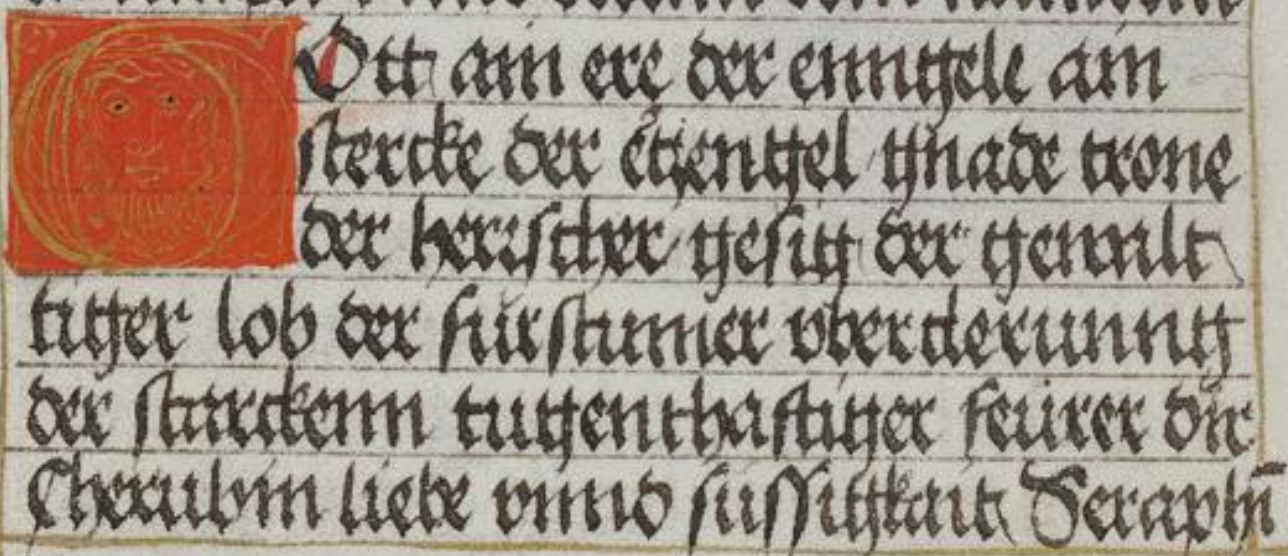 Gott ain ere der enngele ain
stercke der ertzengel gnade trone
der herrscher gesig der gewalt
tiger lob der fürstumer vberclerunng
der starckenn tugenthafftiger feürer der
Cherubin liebe vnnd süssigkait Seraphin